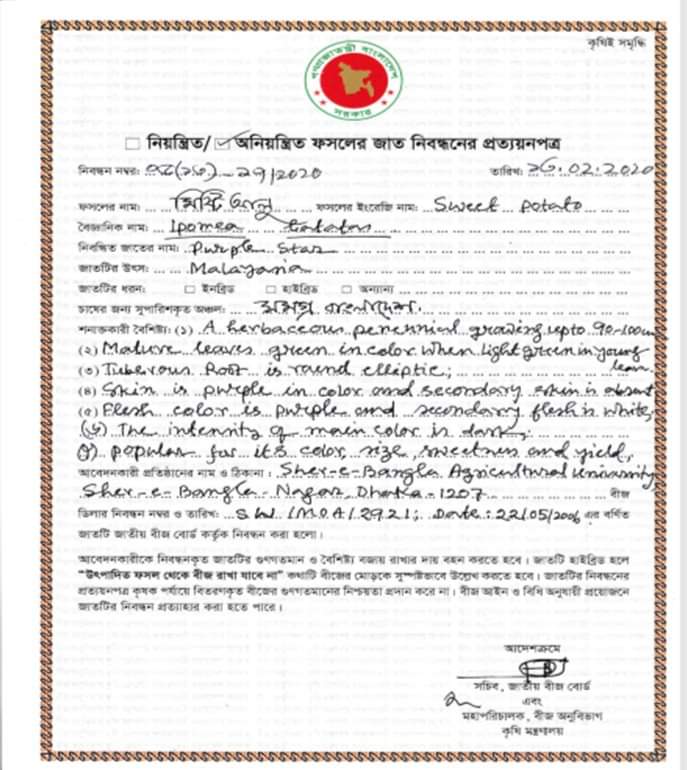 কৃষিই সমৃদ্ধি
গণপ্রজাতন্ত্রী বাংলাদেশ
সরকার
নিয়ন্ত্রিত/ অনিয়ন্ত্রিত ফসলের জাত নিবন্ধনের প্রত্যয়নপত্র
নিবন্ধন নম্বর: তারিখ: ২৬.০২.২০২০
ফসলের নাম: মিষ্টি আলু ফসলের ইংরেজি নাম: Sweet potato
বৈজ্ঞানিক নাম: Ipomea batatas
নিবন্ধিত জাতের নাম: Purple Star
জাতটির উৎস: Malaysia
জাতটির ধরন: ইনব্রিড হাইব্রিড অন্যান্য
চাষের জন্য সুপারিশকৃত অঞ্চল: সমগ্র বাংলাদেশ.
শনাক্তকারী বৈশিষ্ট্য: (১) A herbaceous perennial growing upto 90-100cm
(২) Mature leaves green in color when light green in young
(৩) Tuberous Root is round elliptic; leaves.
(৪) Skin is purple in color and secondary skin is absent
(৫) Flesh color is purple and secondary flesh is white,
(৬) The intensity of main color is dark;
(৭) popular for its color, size, sweetness and yield,
আবেদনকারী প্রতিষ্ঠানের নাম ও ঠিকানা: Sher-e-Bangla Agricultural University
Sher-e-Bangla Nagar, Dhaka-1207 বীজ
ডিলার নিবন্ধন নম্বর ও তারিখ: S.W/MOA/2921; Date: 22/05/2006 এর বর্ণিত
জাতটি জাতীয় বীজ বোর্ড কর্তৃক নিবন্ধন করা হলো।
আবেদনকারীকে নিবন্ধনকৃত জাতটির গুণগতমান ও বৈশিষ্ট্য বজায় রাখার দায় বহন করতে হবে। জাতটি হাইব্রিড হলে
“উৎপাদিত ফসল থেকে বীজ রাখা যাবে না” কথাটি বীজের মোড়কে সুস্পষ্টভাবে উল্লেখ করতে হবে। জাতটির নিবন্ধনের
প্রত্যয়নপত্র কৃষক পর্যায়ে বিতরণকৃত বীজের গুণগতমানের নিশ্চয়তা প্রদান করে না। বীজ আইন ও বিধি অনুযায়ী প্রয়োজনে
জাতটির নিবন্ধন প্রত্যাহার করা হতে পারে।
আদেশক্রমে
সচিব, জাতীয় বীজ বোর্ড
এবং
মহাপরিচালক, বীজ অনুবিভাগ
কৃষি মন্ত্রণালয়